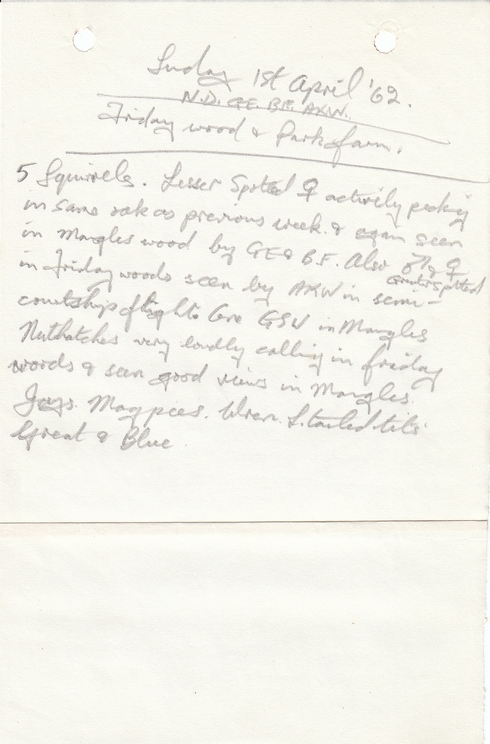 Sunday 1st April '62.
N.D. G.E. B.F. AKW.
Friday wood & Park farm.
5 Squirrels. Lesser Spotted ♀ actively pecking
in same oak as previous week & again seen
in Mangles wood by GE & B.F. Also ♂ & ♀
Greater spotted
in Friday woods seen by AKW in semi-
courtship flight. One GSW in Mangles
Nuthatches very loudly calling in friday
woods & seen good views in Mangles.
Jays. Magpies. Wren. L. tailed tits.
Great & Blue